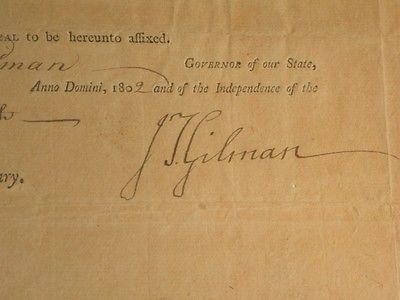 EAL to be hereunto affixed.
lman Governor of our State,
Anno Domini, 1802 and of the Independence of the
J T Gilman
ary.